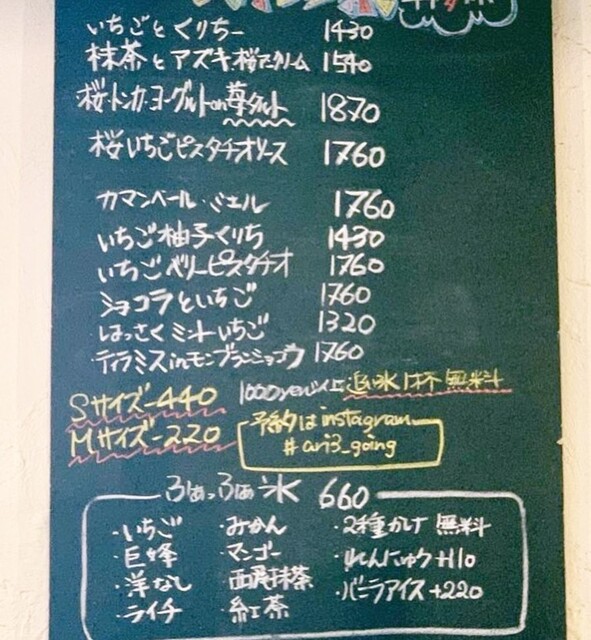 いちごとくりちー 1430
抹茶とアズキ桜アニクリーム 1540
桜・トンカ・ヨーグルトon苺タルト 1870
桜いちごピスタチオリース 1760
カマンベール・ミエル 1760
いちご柚子くりち 1430
いちごベリーピスタチオ 1760
ショコラといちご 1760
はっさくミントいちご 1320
ティラミスinモンブランショコラ 1760
Sサイズ-440 1000yen以上 追い氷1杯無料
Mサイズ-220 予約はinstagram
# ari3_going
ふぁっふぁ氷 660
・いちご ・みかん ・2種かけ 無料
・巨峰 ・マンゴー ・れんにゅう+110
・洋なし 西尾抹茶 ・バニラアイス+220
・ライチ ・紅茶